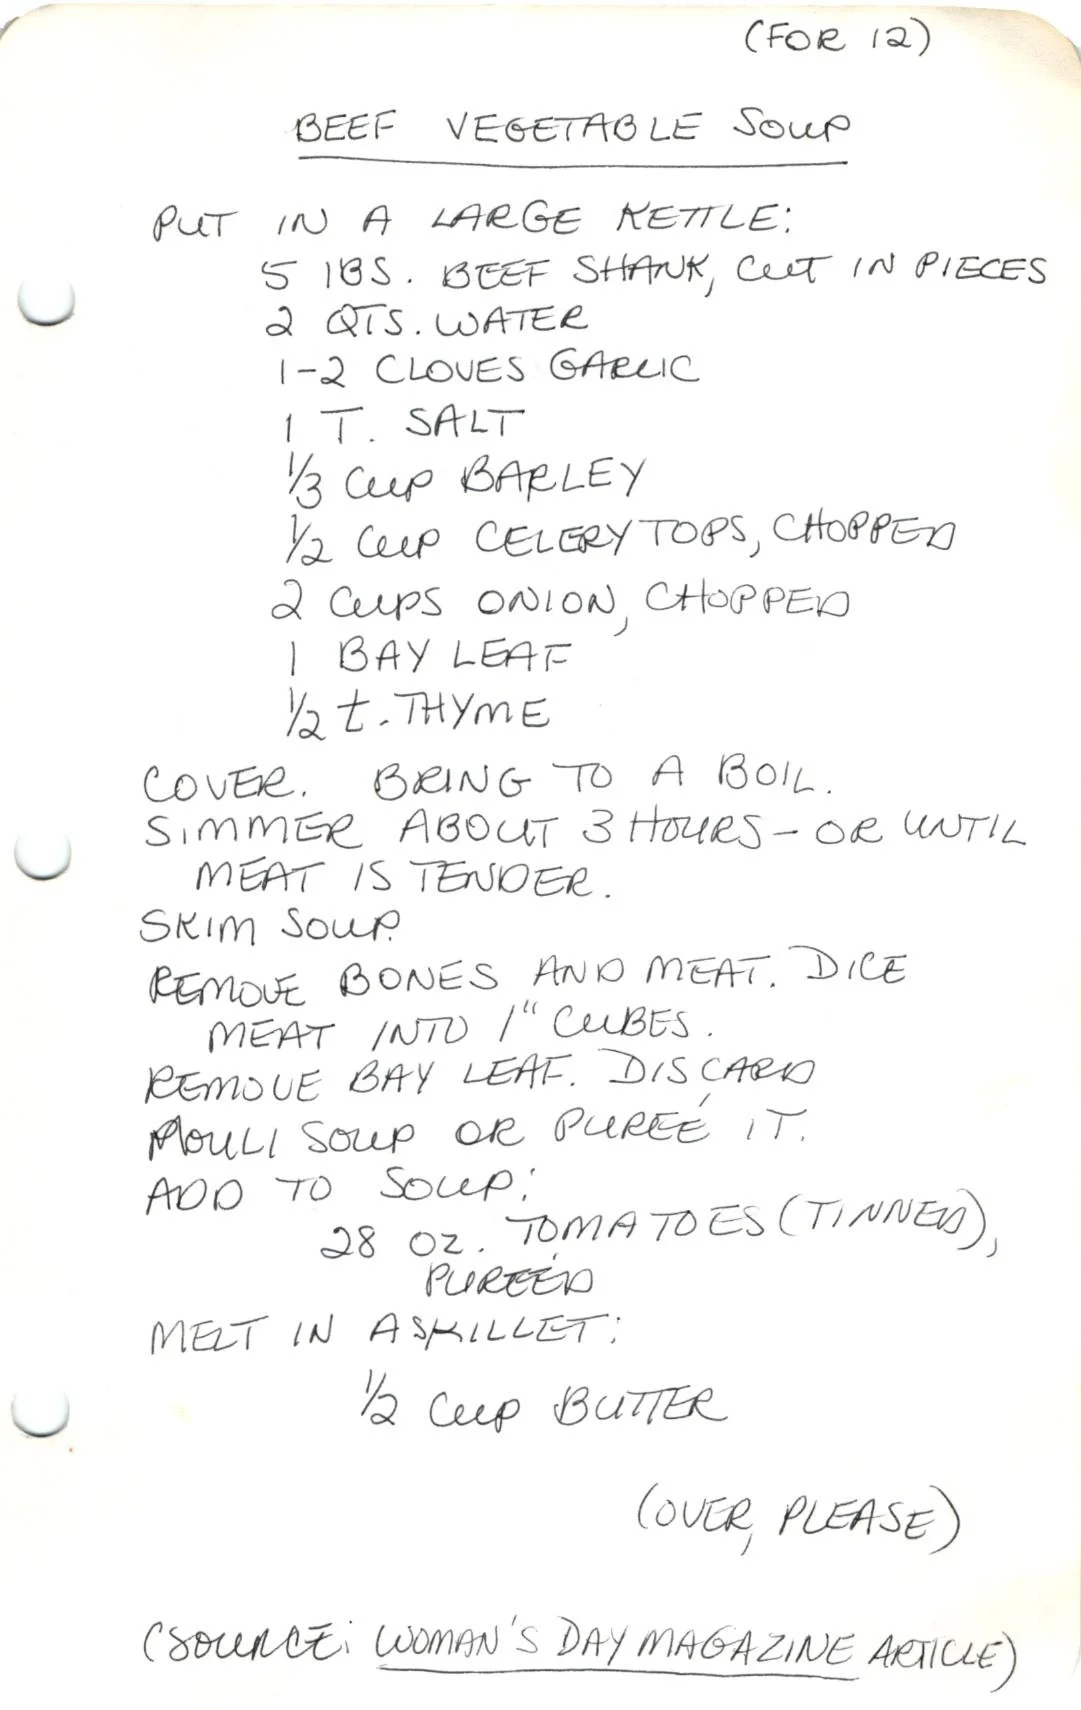 (FOR 12)
BEEF VEGETABLE SOUP
PUT IN A LARGE KETTLE:
5 lBS. BEEF SHANK, CUT IN PIECES
2 QTS. WATER
1-2 CLOVES GARLIC
1 T. SALT
1/3 CUP BARLEY
1/2 CUP CELERY TOPS, CHOPPED
2 CUPS ONION, CHOPPED
1 BAY LEAF
1/2 t. THYME
COVER. BRING TO A BOIL.
SIMMER ABOUT 3 HOURS - OR UNTIL
MEAT IS TENDER.
SKIM SOUP.
REMOVE BONES AND MEAT. DICE
MEAT INTO 1" CUBES.
REMOVE BAY LEAF. DISCARD
MOULI SOUP OR PUREÉ IT.
ADD TO SOUP:
28 OZ. TOMATOES (TINNED),
PUREÉD
MELT IN A SKILLET:
1/2 CUP BUTTER
(OVER, PLEASE)
(SOURCE: WOMAN'S DAY MAGAZINE ARTICLE)